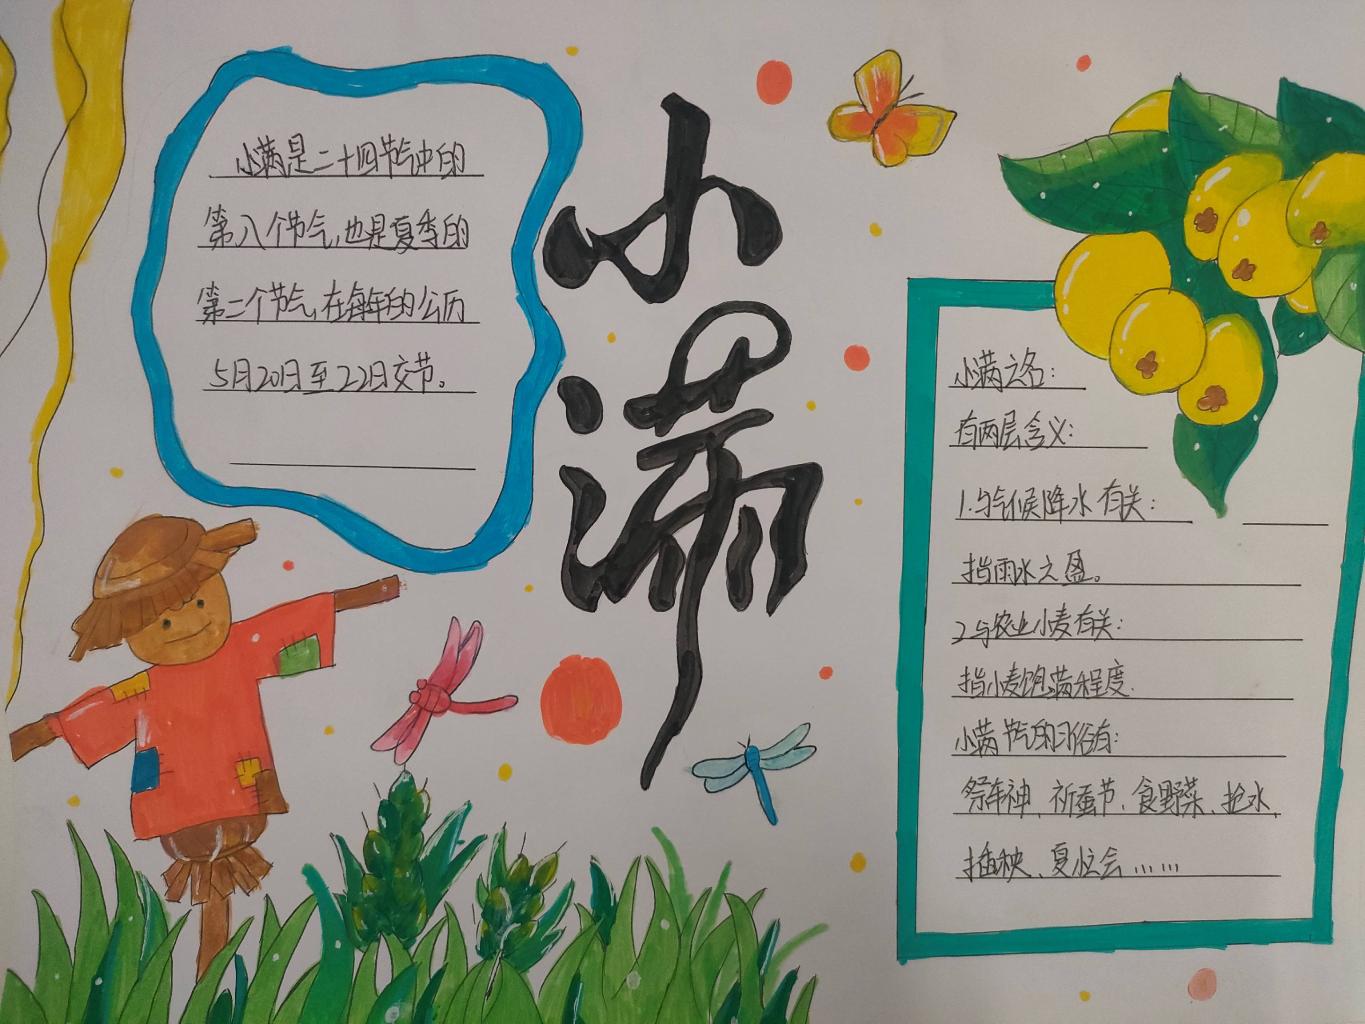 小满是二十四节气中的
第八个节气,也是夏季的
第二个节气,在每年的公历
5月20日至22日交节。
小满
小满之名:
有两层含义:
1.与气候降水有关:
指雨水之盈。
2与农业小麦有关:
指小麦饱满程度.
小满节气的习俗有:
祭车神、祈蚕节、食野菜、抢水、
插秧、夏忙会……